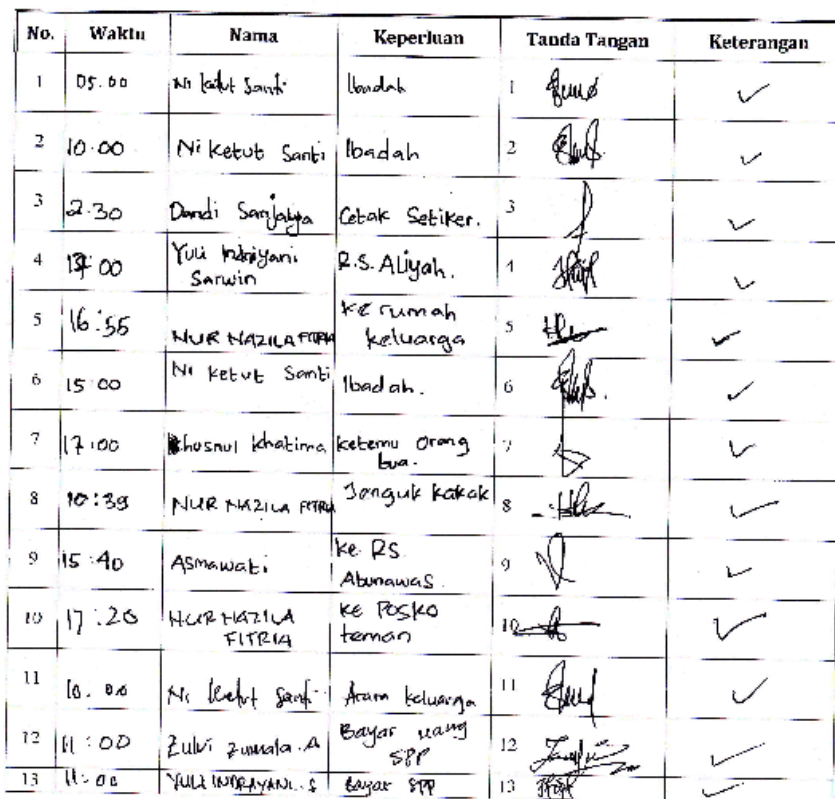 No. Waktu Nama Keperluan Tanda Tangan Keterangan
1 05.00 Ni Ketut Santi Ibadah 1
2 10.00 Ni Ketut Santi Ibadah 2
3 2.30 Dandi Sanjaya Cetak Setiker. 3
4 00 Yuli Indriyani Sarwin R.S. Aliyah. 4
5 16:55 NUR NAZILA FITRIA ke rumah keluarga 5
6 15:00 Ni Ketut Santi Ibadah. 6
7 17:00 Khusnul Khatima ketemu orang tua. 7
8 10:39 NUR NAZILA FITRIA Jenguk kakak 8
9 15:40 Asmawati ke RS. Abunawas. 9
10 17:20 NUR NAZILA FITRIA ke Posko teman 10
11 10.00 Ni Ketut Santi keluarga 11
12 11:00 Zulvi Zumala. A Bayar uang SPP 12
13 11:00 YULI INDRAYANI. S Bayar SPP 13